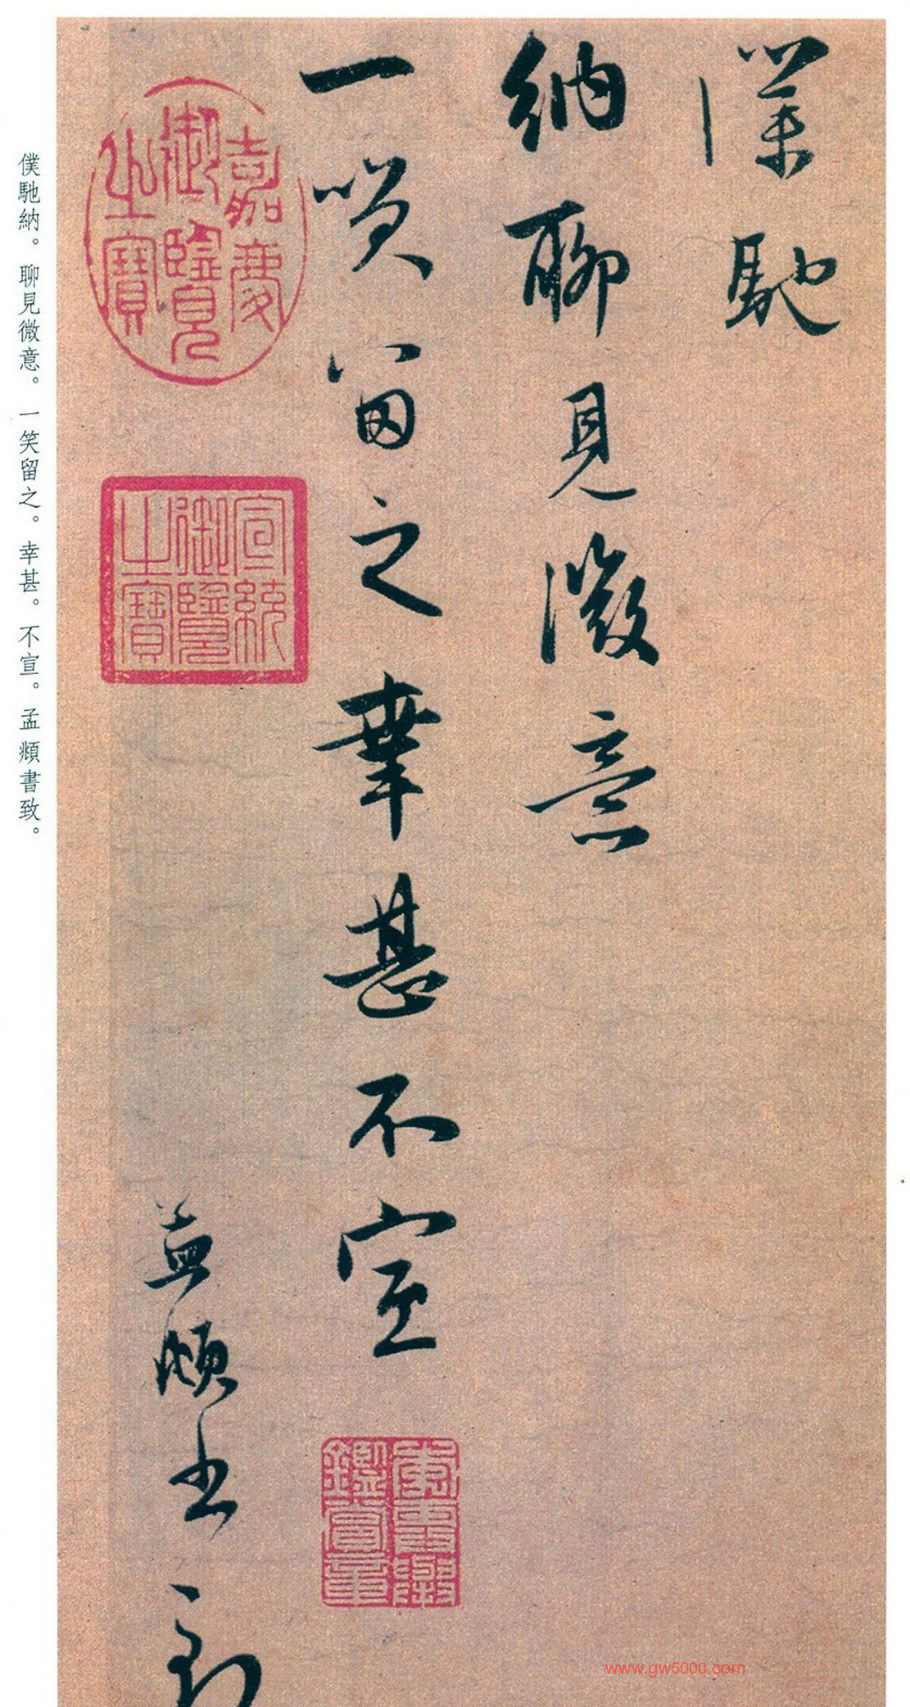 僕馳
納聊見微意
一笑留之幸甚不宣
孟頫書致
嘉慶
御覽
之寶
宣統
御覽
之寶
鑑賞章
僕馳納。聊見微意。一笑留之。幸甚。不宣。孟頫書致。
www.gw5000.com